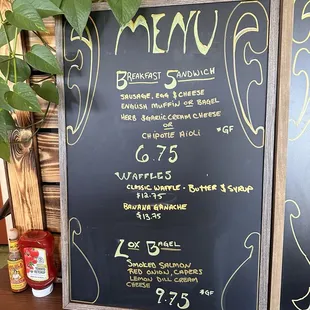 MENU
BREAKFAST SANDWICH
SAUSAGE, EGG & CHEESE
ENGLISH MUFFIN OR BAGEL
HERB GARLIC CREAM CHEESE
OR
CHIPOTLE AIOLI *GF
6.75
WAFFLES
CLASSIC WAFFLE - BUTTER & SYRUP
$12.75
BANANA GANACHE
$13.75
LOX BAGEL
SMOKED SALMON
RED ONION, CAPERS
LEMON DILL CREAM
CHEESE *GF
9.75